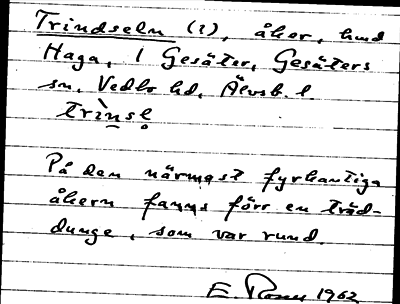 Trindseln (?), åker, hmd
Haga, 1 Gesäter, Gesäters
sn, Vedbo hd, Älvsb. l.
trìnsl̥
På den närmast fyrkantiga
åkern fanns förr en träd-
dunge, som var rund.
E. 1962